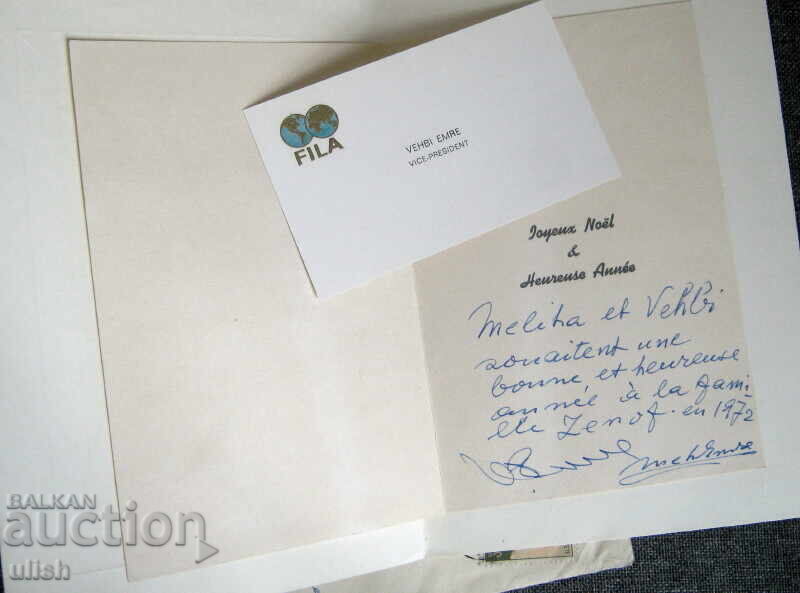 FILA
VEHBI EMRE
VICE-PRESIDENT
Joyeux Noël
&
Heureuse Année
Meliha et Vehbi
souaitent une
bonne, et heureuse
année à la fami-
lle Zenof. en 1972
BALKAN
auction
ulish